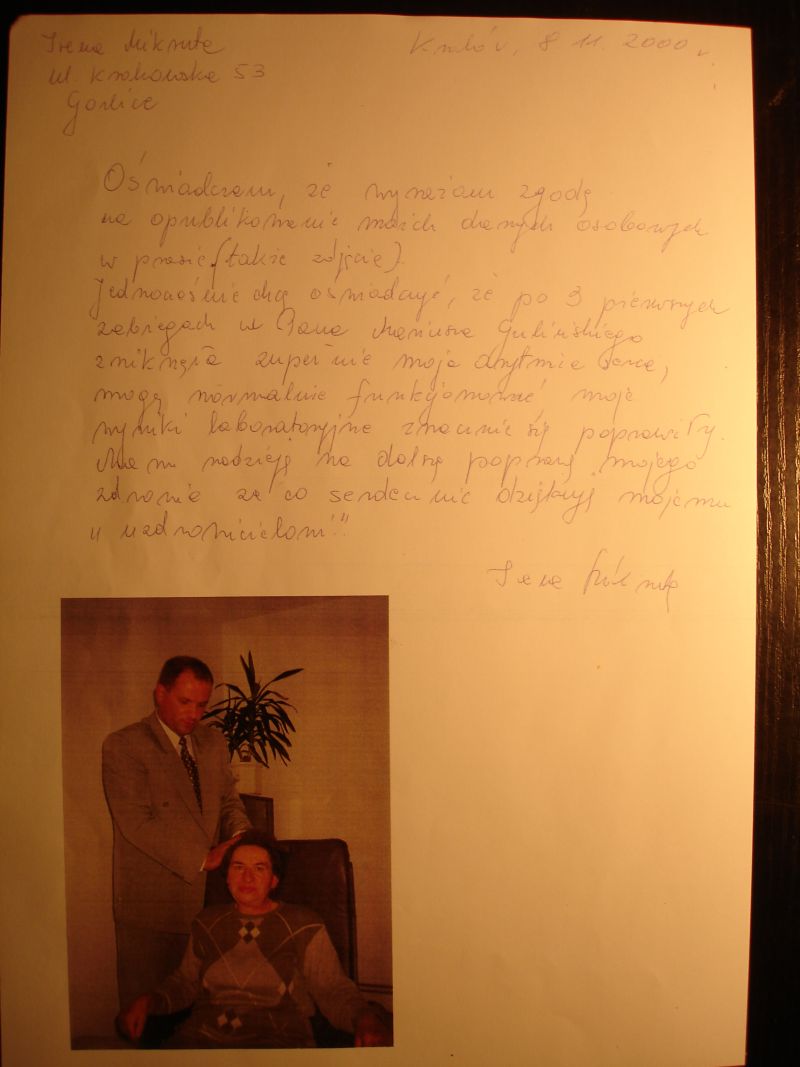 Irena Mikruta
ul. Krakowska 53
Gorlice
Kraków, 8 11. 2000 r.
Oświadczam, że wyrażam zgodę
na opublikowanie moich danych osobowych
w prasie (także zdjęcie).
Jednocześnie chcę oświadczyć, że po 3 pierwszych
zabiegach u Pana Mariusza Gulińskiego
zniknęła zupełnie moja arytmia serca,
mogę normalnie funkcjonować moje
wyniki laboratoryjne znacznie się poprawiły.
Mam nadzieję na dalszą poprawę mojego
zdrowia za co serdecznie dziękuję mojemu
"uzdrowicielowi"!
Irena Mikruta